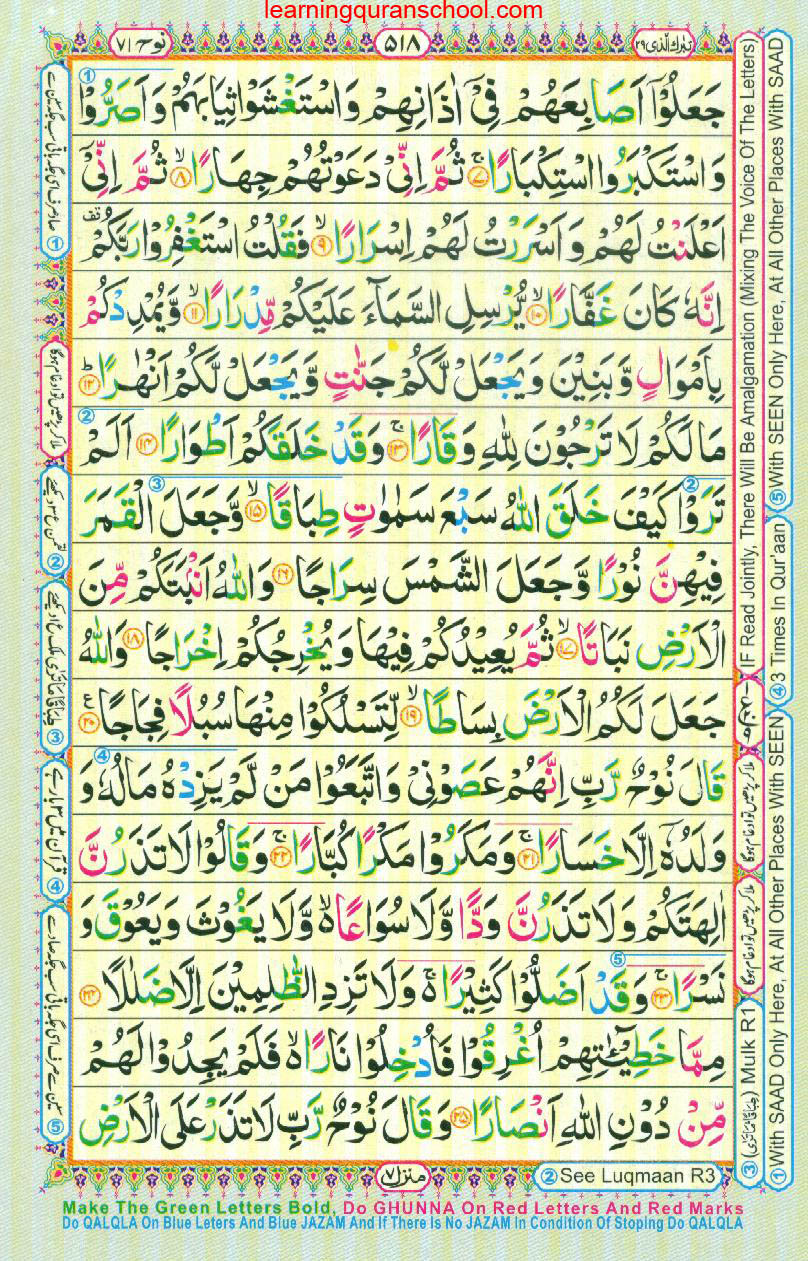 learningquranschool.com
نوح ٧١
٥١٨
تبٰرك الذى ٢٩
جَعَلُوْۤا اَصَابِعَهُمْ فِیْۤ اٰذَانِهِمْ وَاسْتَغْشَوْا ثِیَابَهُمْ وَ اَصَرُّوْا
وَاسْتَكْبَرُوا اسْتِكْبَارًاۚ ۷ ثُمَّ اِنِّیْ دَعَوْتُهُمْ جِهَارًاۙ ۸ ثُمَّ اِنِّیْۤ
اَعْلَنْتُ لَهُمْ وَ اَسْرَرْتُ لَهُمْ اِسْرَارًاۙ ۹ فَقُلْتُ اسْتَغْفِرُوْا رَبَّكُمْ
اِنَّهٗ كَانَ غَفَّارًاۙ ۱۰ یُّرْسِلِ السَّمَآءَ عَلَیْكُمْ مِّدْرَارًاۙ ۱۱ وَّیُمْدِدْكُمْ
بِاَمْوَالٍ وَّ بَنِیْنَ وَ یَجْعَلْ لَّكُمْ جَنّٰتٍ وَّ یَجْعَلْ لَّكُمْ اَنْهٰرًاؕ ۱۲
مَا لَكُمْ لَا تَرْجُوْنَ لِلّٰهِ وَقَارًاۚ ۱۳ وَ قَدْ خَلَقَكُمْ اَطْوَارًا ۱۴ اَلَمْ
تَرَوْا كَیْفَ خَلَقَ اللّٰهُ سَبْعَ سَمٰوٰتٍ طِبَاقًاۙ ۱۵ وَّ جَعَلَ الْقَمَرَ
فِیْهِنَّ نُوْرًا وَّ جَعَلَ الشَّمْسَ سِرَاجًا ۱۶ وَ اللّٰهُ اَنْۢبَتَكُمْ مِّنَ
الْاَرْضِ نَبَاتًاۙ ۱۷ ثُمَّ یُعِیْدُكُمْ فِیْهَا وَ یُخْرِجُكُمْ اِخْرَاجًا ۱۸ وَ اللّٰهُ
جَعَلَ لَكُمُ الْاَرْضَ بِسَاطًاۙ ۱۹ لِّتَسْلُكُوْا مِنْهَا سُبُلًا فِجَاجًا ۲۰ ع
قَالَ نُوْحٌ رَّبِّ اِنَّهُمْ عَصَوْنِیْ وَ اتَّبَعُوْا مَنْ لَّمْ یَزِدْهُ مَالُهٗ وَ
وَلَدُهٗۤ اِلَّا خَسَارًاۚ ۲۱ وَ مَكَرُوْا مَكْرًا كُبَّارًاۚ ۲۲ وَ قَالُوْا لَا تَذَرُنَّ
اٰلِهَتَكُمْ وَ لَا تَذَرُنَّ وَدًّا وَّ لَا سُوَاعًا ۙ۬ وَّ لَا یَغُوْثَ وَ یَعُوْقَ وَ
نَسْرًاۚ ۲۳ وَ قَدْ اَضَلُّوْا كَثِیْرًا ۚ۬ وَ لَا تَزِدِ الظّٰلِمِیْنَ اِلَّا ضَلٰلًا ۲۴
مِمَّا خَطِیْٓـٰٔتِهِمْ اُغْرِقُوْا فَاُدْخِلُوْا نَارًا ۙ۬ فَلَمْ یَجِدُوْا لَهُمْ
مِّنْ دُوْنِ اللّٰهِ اَنْصَارًا ۲۵ وَ قَالَ نُوْحٌ رَّبِّ لَا تَذَرْ عَلَی الْاَرْضِ
منزل ٧
② See Luqmaan R3
IF Read Jointly, There Will Be Amalgamation (Mixing The Voice Of The Letters)
③ (طِبَاقًا مَا تَرٰى) Mulk R1
⑤ With SEEN Only Here, At All Other Places With SAAD
④ 3 Times In Qur'aan
① With SAAD Only Here, At All Other Places With SEEN
Make The Green Letters Bold, Do GHUNNA On Red Letters And Red Marks
Do QALQLA On Blue Leters And Blue JAZAM And If There Is No JAZAM In Condition Of Stoping Do QALQLA